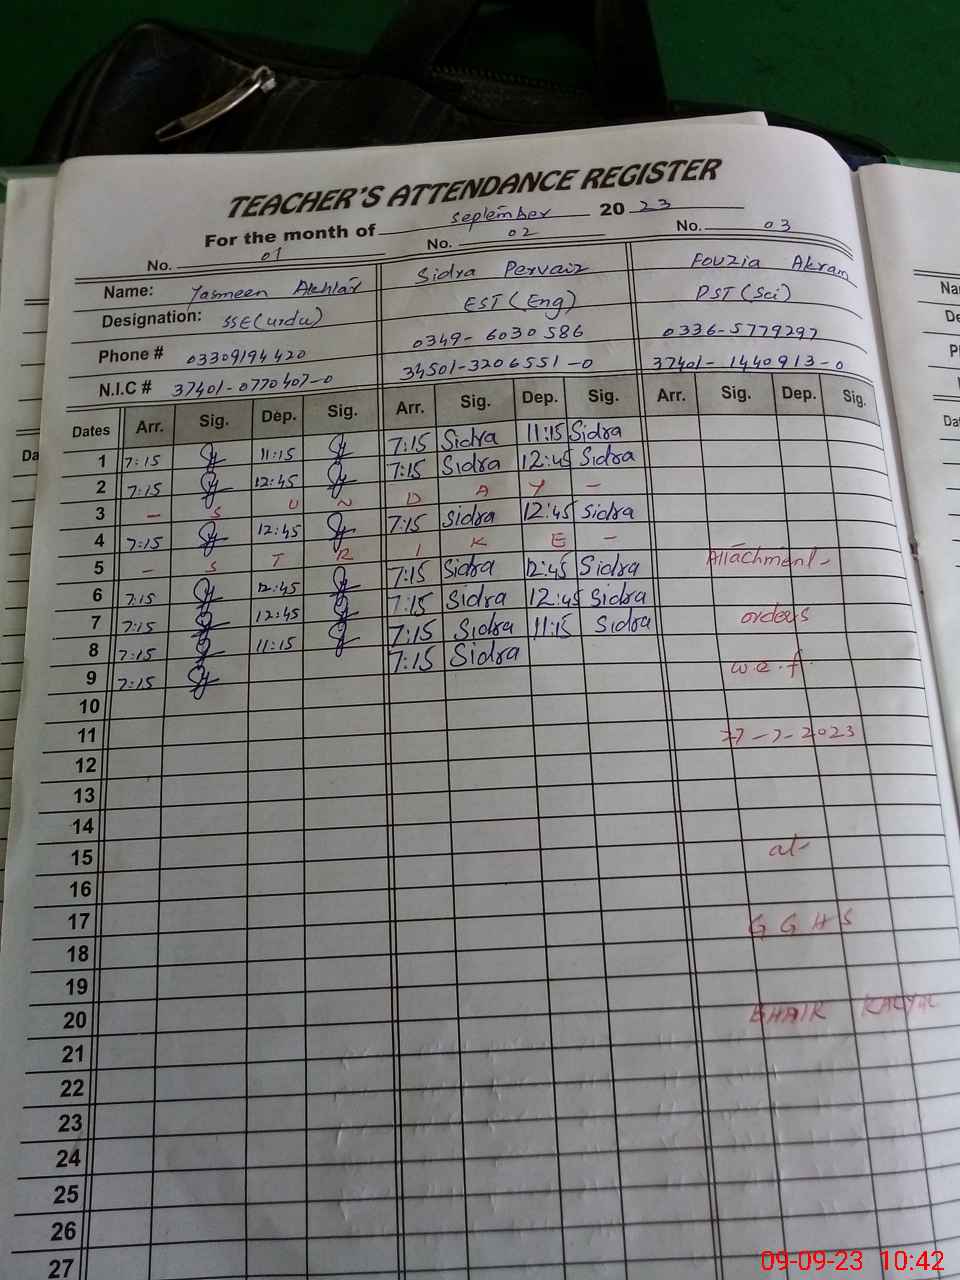 TEACHER'S ATTENDANCE REGISTER
For the month of September 20 23
No. 01 No. 02 No. 03
Name: Yasmeen Akhtar Sidra Pervaiz Fouzia Akram
Designation: SSE(urdu) EST(Eng) PST(Sci)
Phone # 03309194420 0349-6030586 0336-5779297
N.I.C # 37401-0770407-0 34501-3206551-0 37401-1440913-0
Dates Arr. Sig. Dep. Sig. Arr. Sig. Dep. Sig. Arr. Sig. Dep. Sig.
1 7:15 11:15 7:15 Sidra 11:15 Sidra
2 7:15 12:45 7:15 Sidra 12:45 Sidra
3 - S U N D A Y -
4 7:15 12:45 7:15 Sidra 12:45 Sidra
5 - S T R I K E - Attachment
6 7:15 12:45 7:15 Sidra 12:45 Sidra
7 7:15 12:45 7:15 Sidra 12:45 Sidra orders
8 7:15 11:15 7:15 Sidra 11:15 Sidra
9 7:15 7:15 Sidra w.e.f.
10
11 27-7-2023
12
13
14
15 at
16
17 G G H S
18
19
20 BHAIK KALYAL
21
22
23
24
25
26
27
Na
De
P
Da
Da
09-09-23 10:42